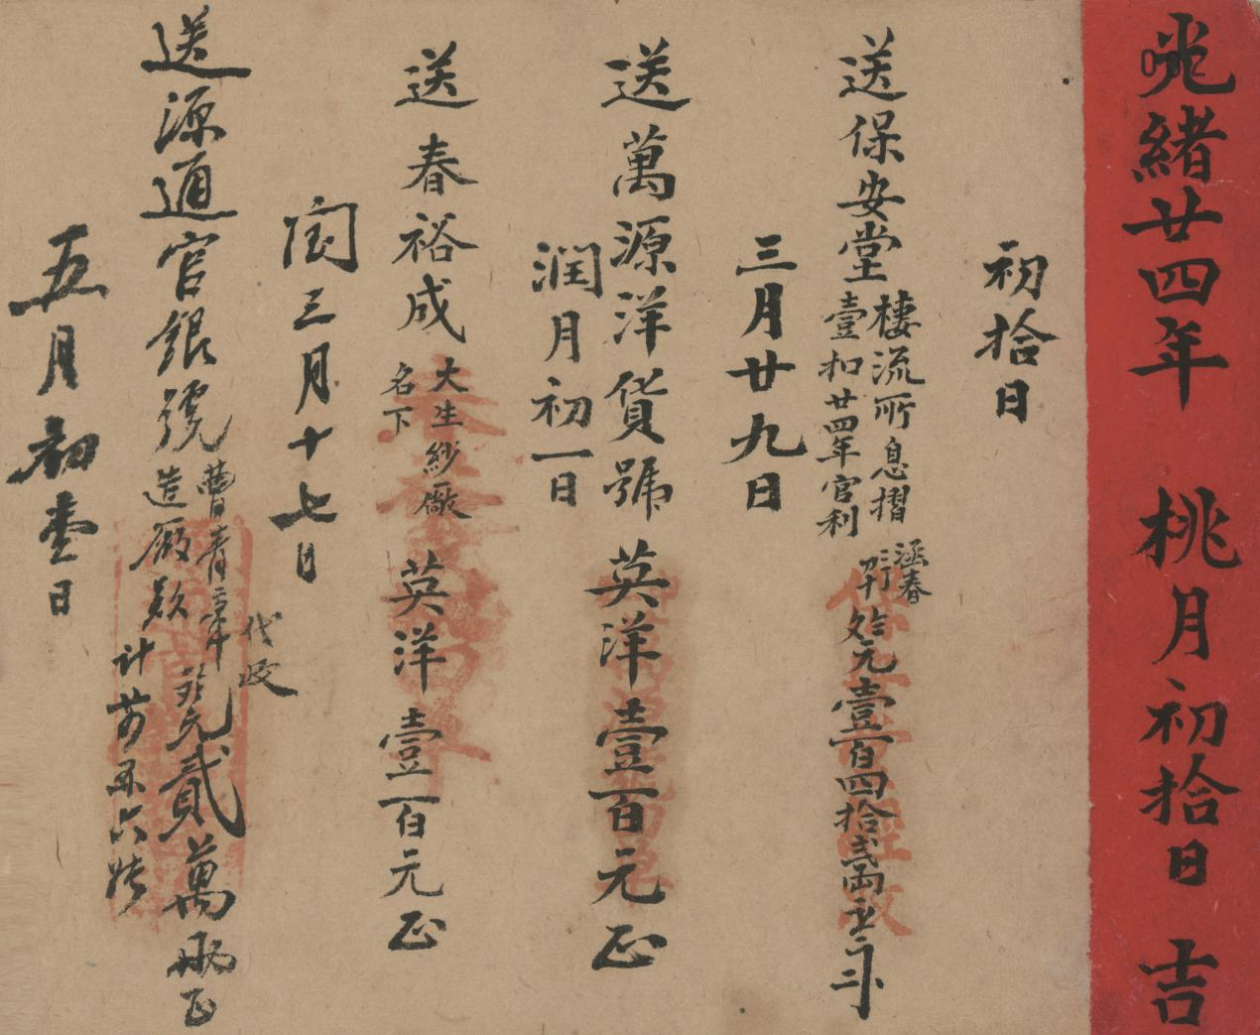 光緒廿四年 桃月初拾日 吉
初拾日
送保安堂
棲流所息摺
壹扣廿四年官利
涵春
元壹百四拾貳兩
三月廿九日
送萬源洋貨號 英洋壹百元正
潤月初一日
送春裕成
大生紗厰
名下
英洋壹百元正
閏三月十七日
送源通官銀號
造厰款
元貳萬兩正
代收
五月初壹日